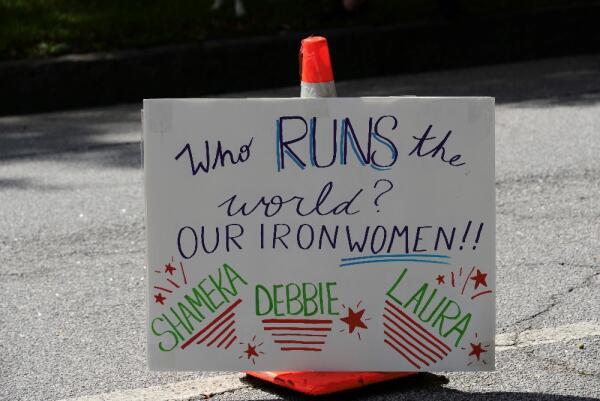 Who RUNS the
world?
OUR IRONWOMEN!!
SHAMEKA DEBBIE LAURA